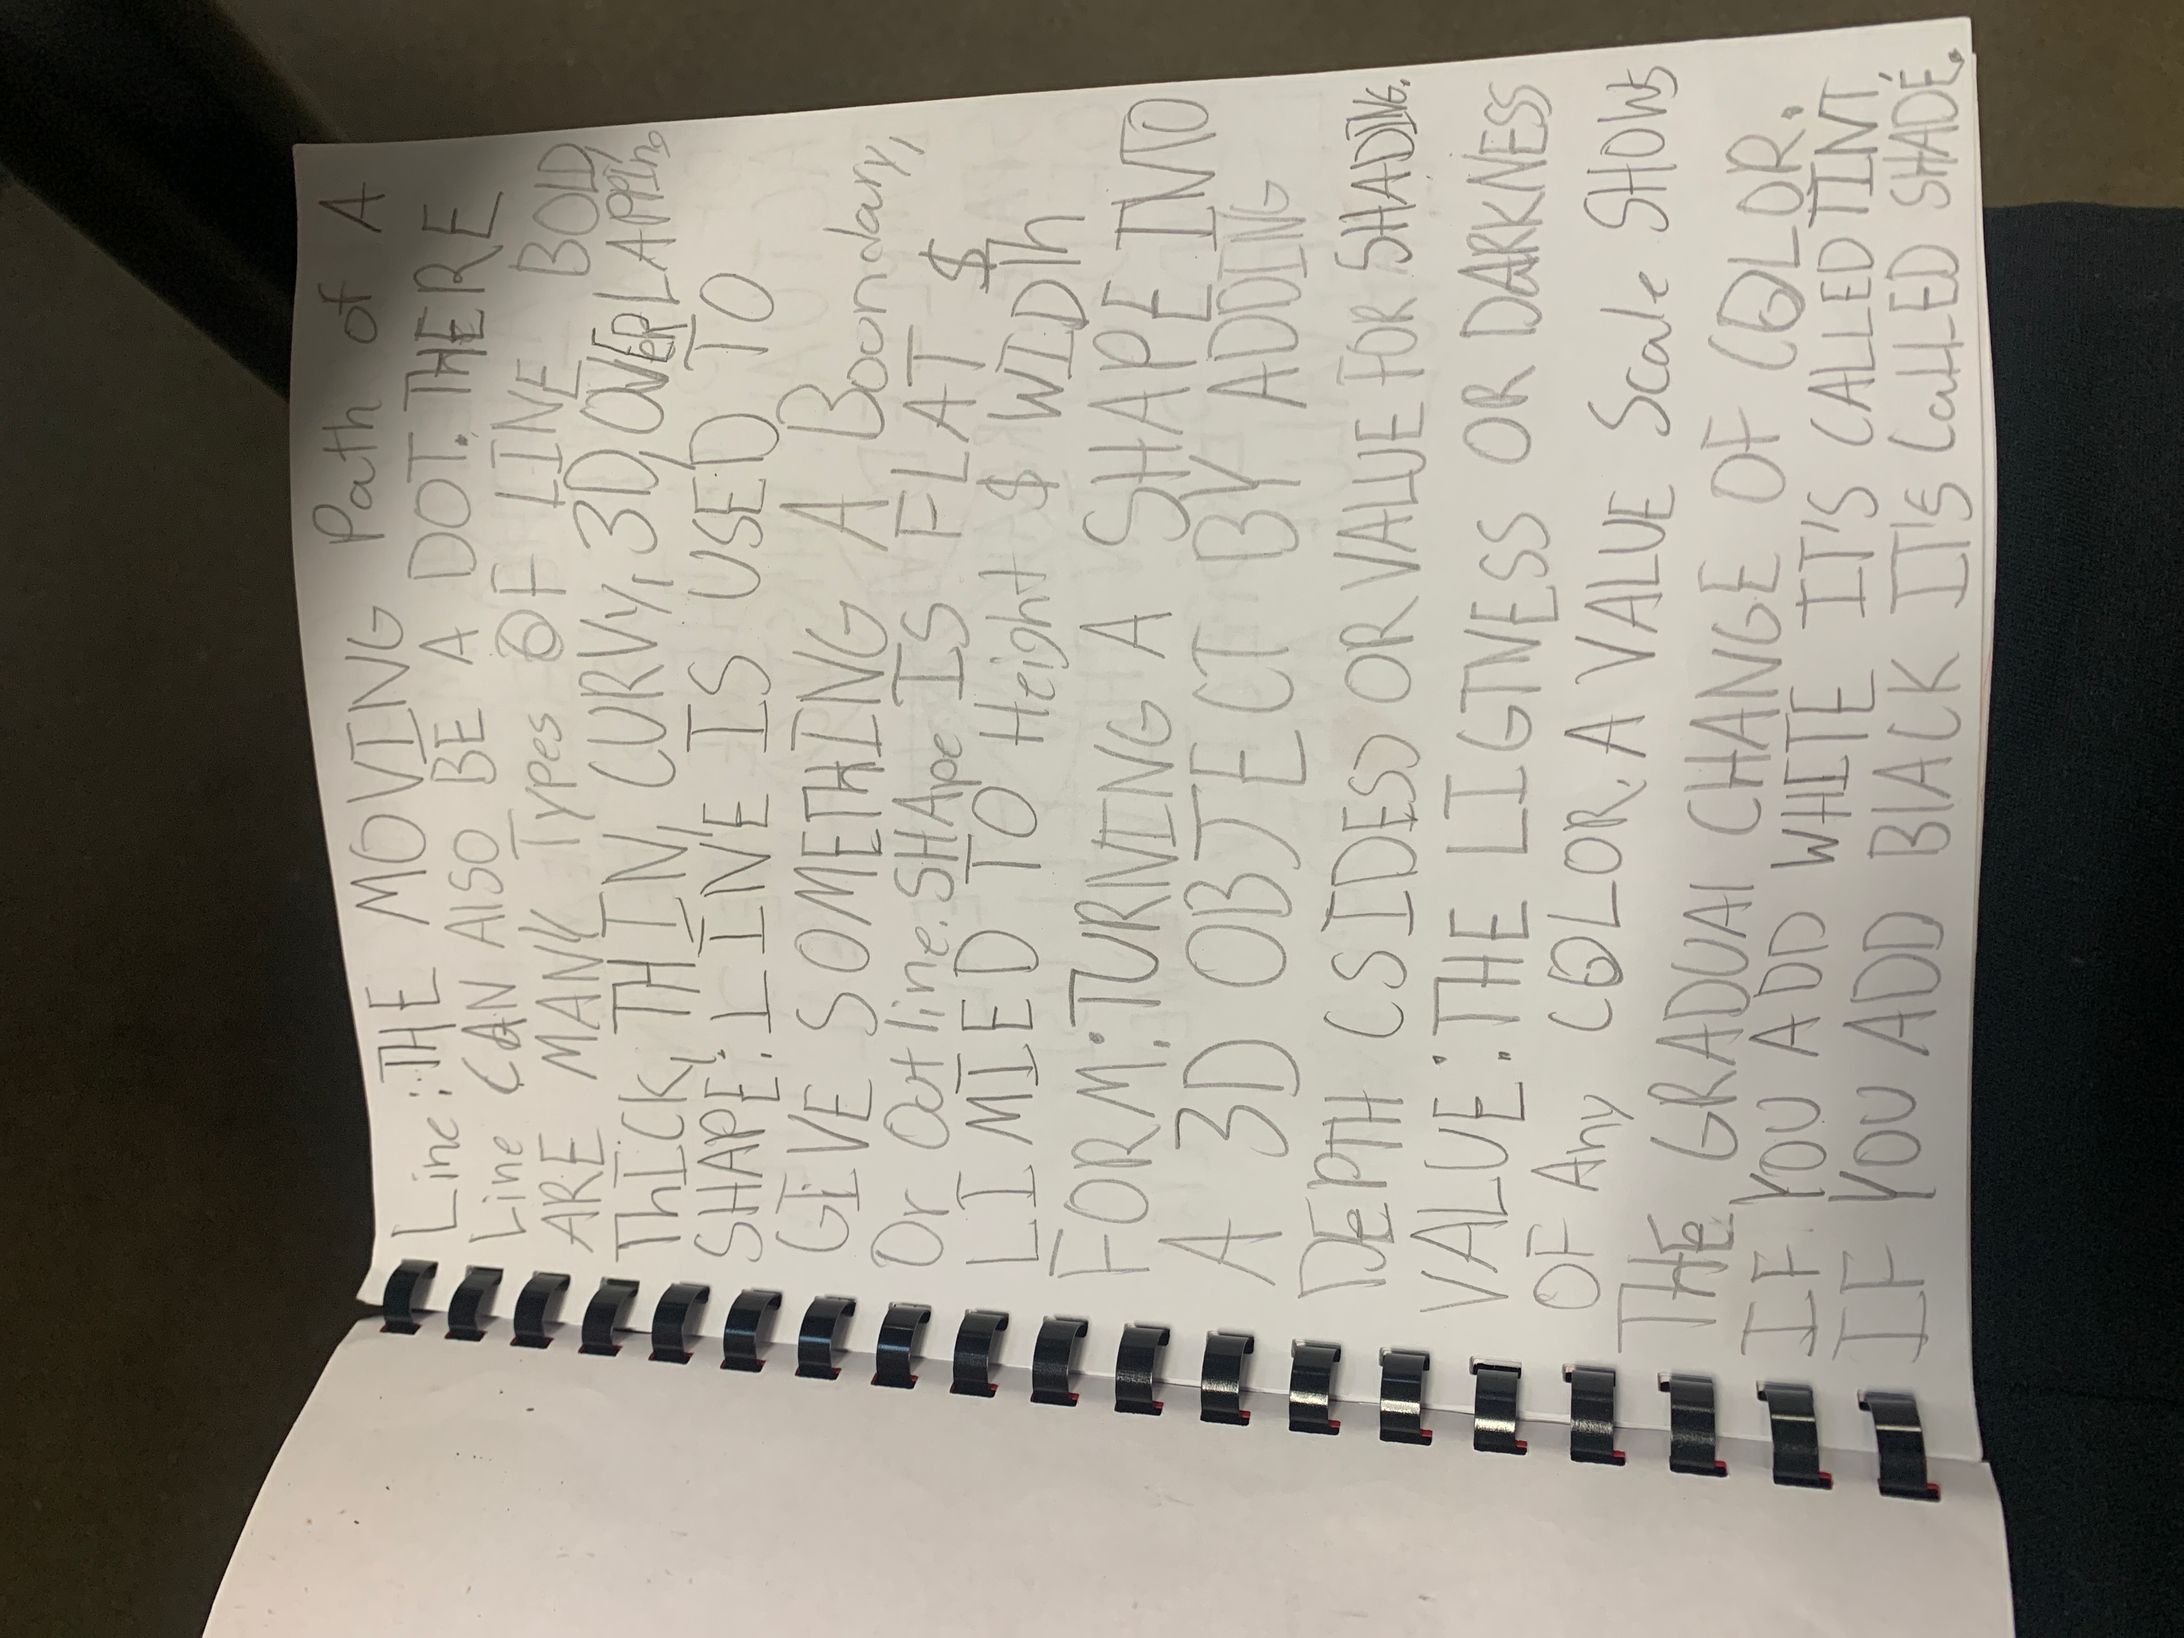 Line: THE MOVING Path of A
Line CAN AlSO BE A DOT. THERE
ARE MANY Types OF LINE BOLD,
ThICK, THIN, CURVY, 3D, OVERLAPPIng
SHAPE: LINE IS USED TO
GIVE SOMETHING A Boundary,
Or Out line. SHApe IS FLAT $
LIMIED TO Height $ WIDTh
FORM: TURNING A SHAPE INTO
A 3D OBJECT BY ADDING
DEPTH (SIDES) OR VALUE FOR SHADING.
VALUE: THE LIGTNESS OR DARKNESS
OF Any COLOR. A VALUE Scale SHOWS
THE GRADUAl CHANGE OF COLOR.
IF YOU ADD WHITE IT'S CALLED TINT,
IF YOU ADD BlACK IT'S CallED SHADE.